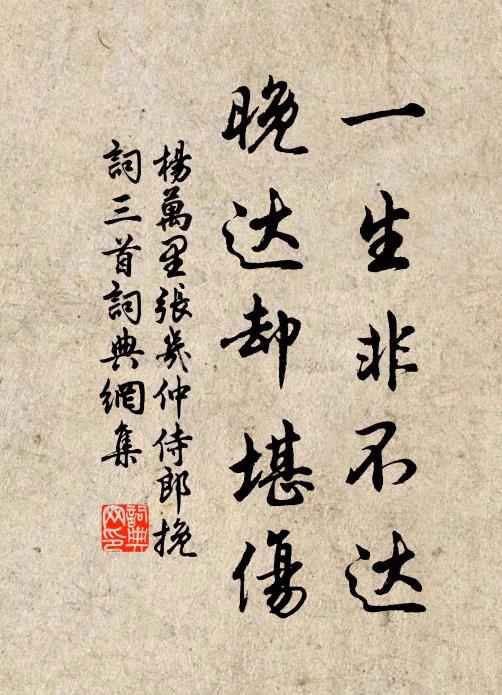 一生非不达
晚达却堪傷
楊萬里張幾仲侍郎挽
詞三首詞典網集
詞典网印